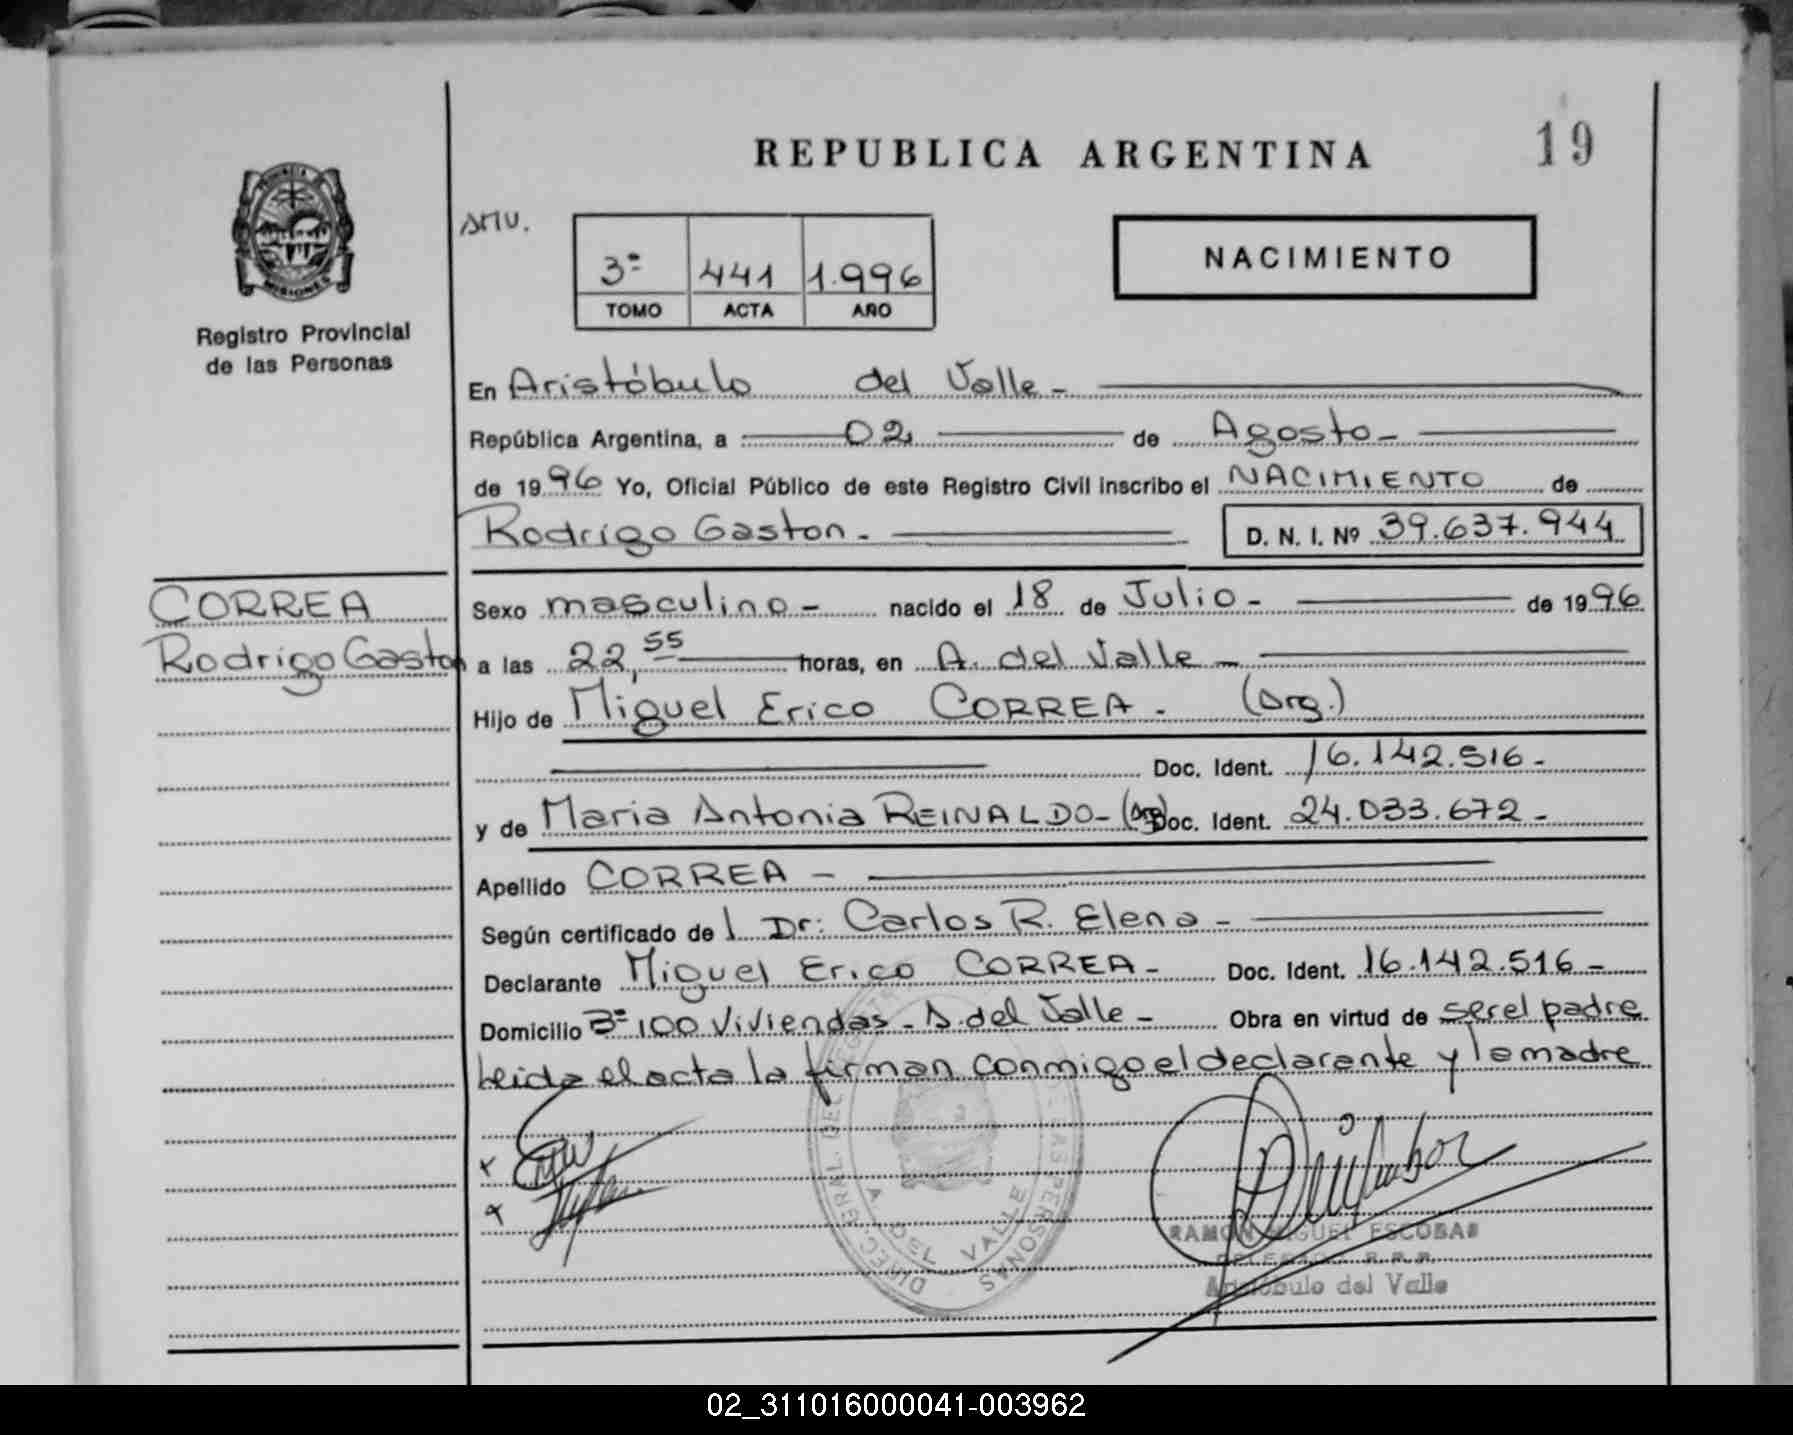 REPUBLICA ARGENTINA
19
PROVINCIA
MISIONES
Registro Provincial
de las Personas
3º 441 1.996
TOMO ACTA AÑO
NACIMIENTO
En Aristóbulo del Valle-
República Argentina, a 02 de Agosto-
de 1996 Yo, Oficial Público de este Registro Civil inscribo el NACIMIENTO de
Rodrigo Gaston.- D. N. I. Nº 39.637.944
CORREA
Rodrigo Gaston
Sexo masculino- nacido el 18 de Julio- de 1996
a las 22,55 horas, en A. del Valle-
Hijo de Miguel Erico CORREA. (Arg.)
Doc. Ident. 16.142.516-
y de Maria Antonia REINALDO- (Arg) Doc. Ident. 24.033.672-
Apellido CORREA -
Según certificado de l Dr: Carlos R. Elena-
Declarante Miguel Erico CORREA- Doc. Ident. 16.142.516-
Domicilio 3º 100 Viviendas- A. del Valle- Obra en virtud de ser el padre
Leida el acta la firman conmigo el declarante y la madre
DIREC. GRAL. DEL REGISTR LAS PERSONAS
A. DEL VALLE
RAMON MIGUEL ESCOBAR
DELEGADO R.P.P.
Aristóbulo del Valle
02_311016000041-003962